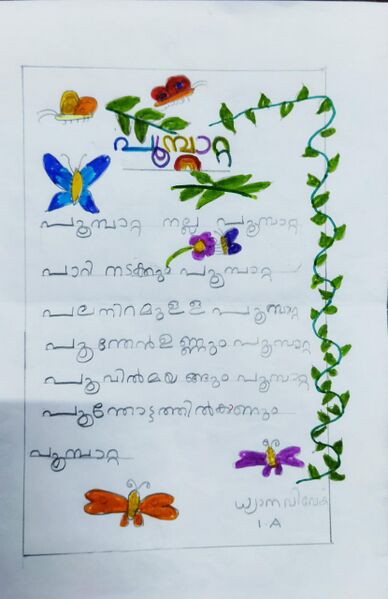 പൂമ്പാറ്റ
പൂമ്പാറ്റ നല്ല പൂമ്പാറ്റ
പാറി നടക്കും പൂമ്പാറ്റ
പലനിറമുള്ള പൂമ്പാറ്റ
പൂന്തേൻഉണ്ണും പൂമ്പാറ്റ
പൂവിൽമയങ്ങും പൂമ്പാറ്റ
പൂന്തോട്ടത്തിൽകാണും
പൂമ്പാറ്റ
ധ്യാനവിവേക്
1.A